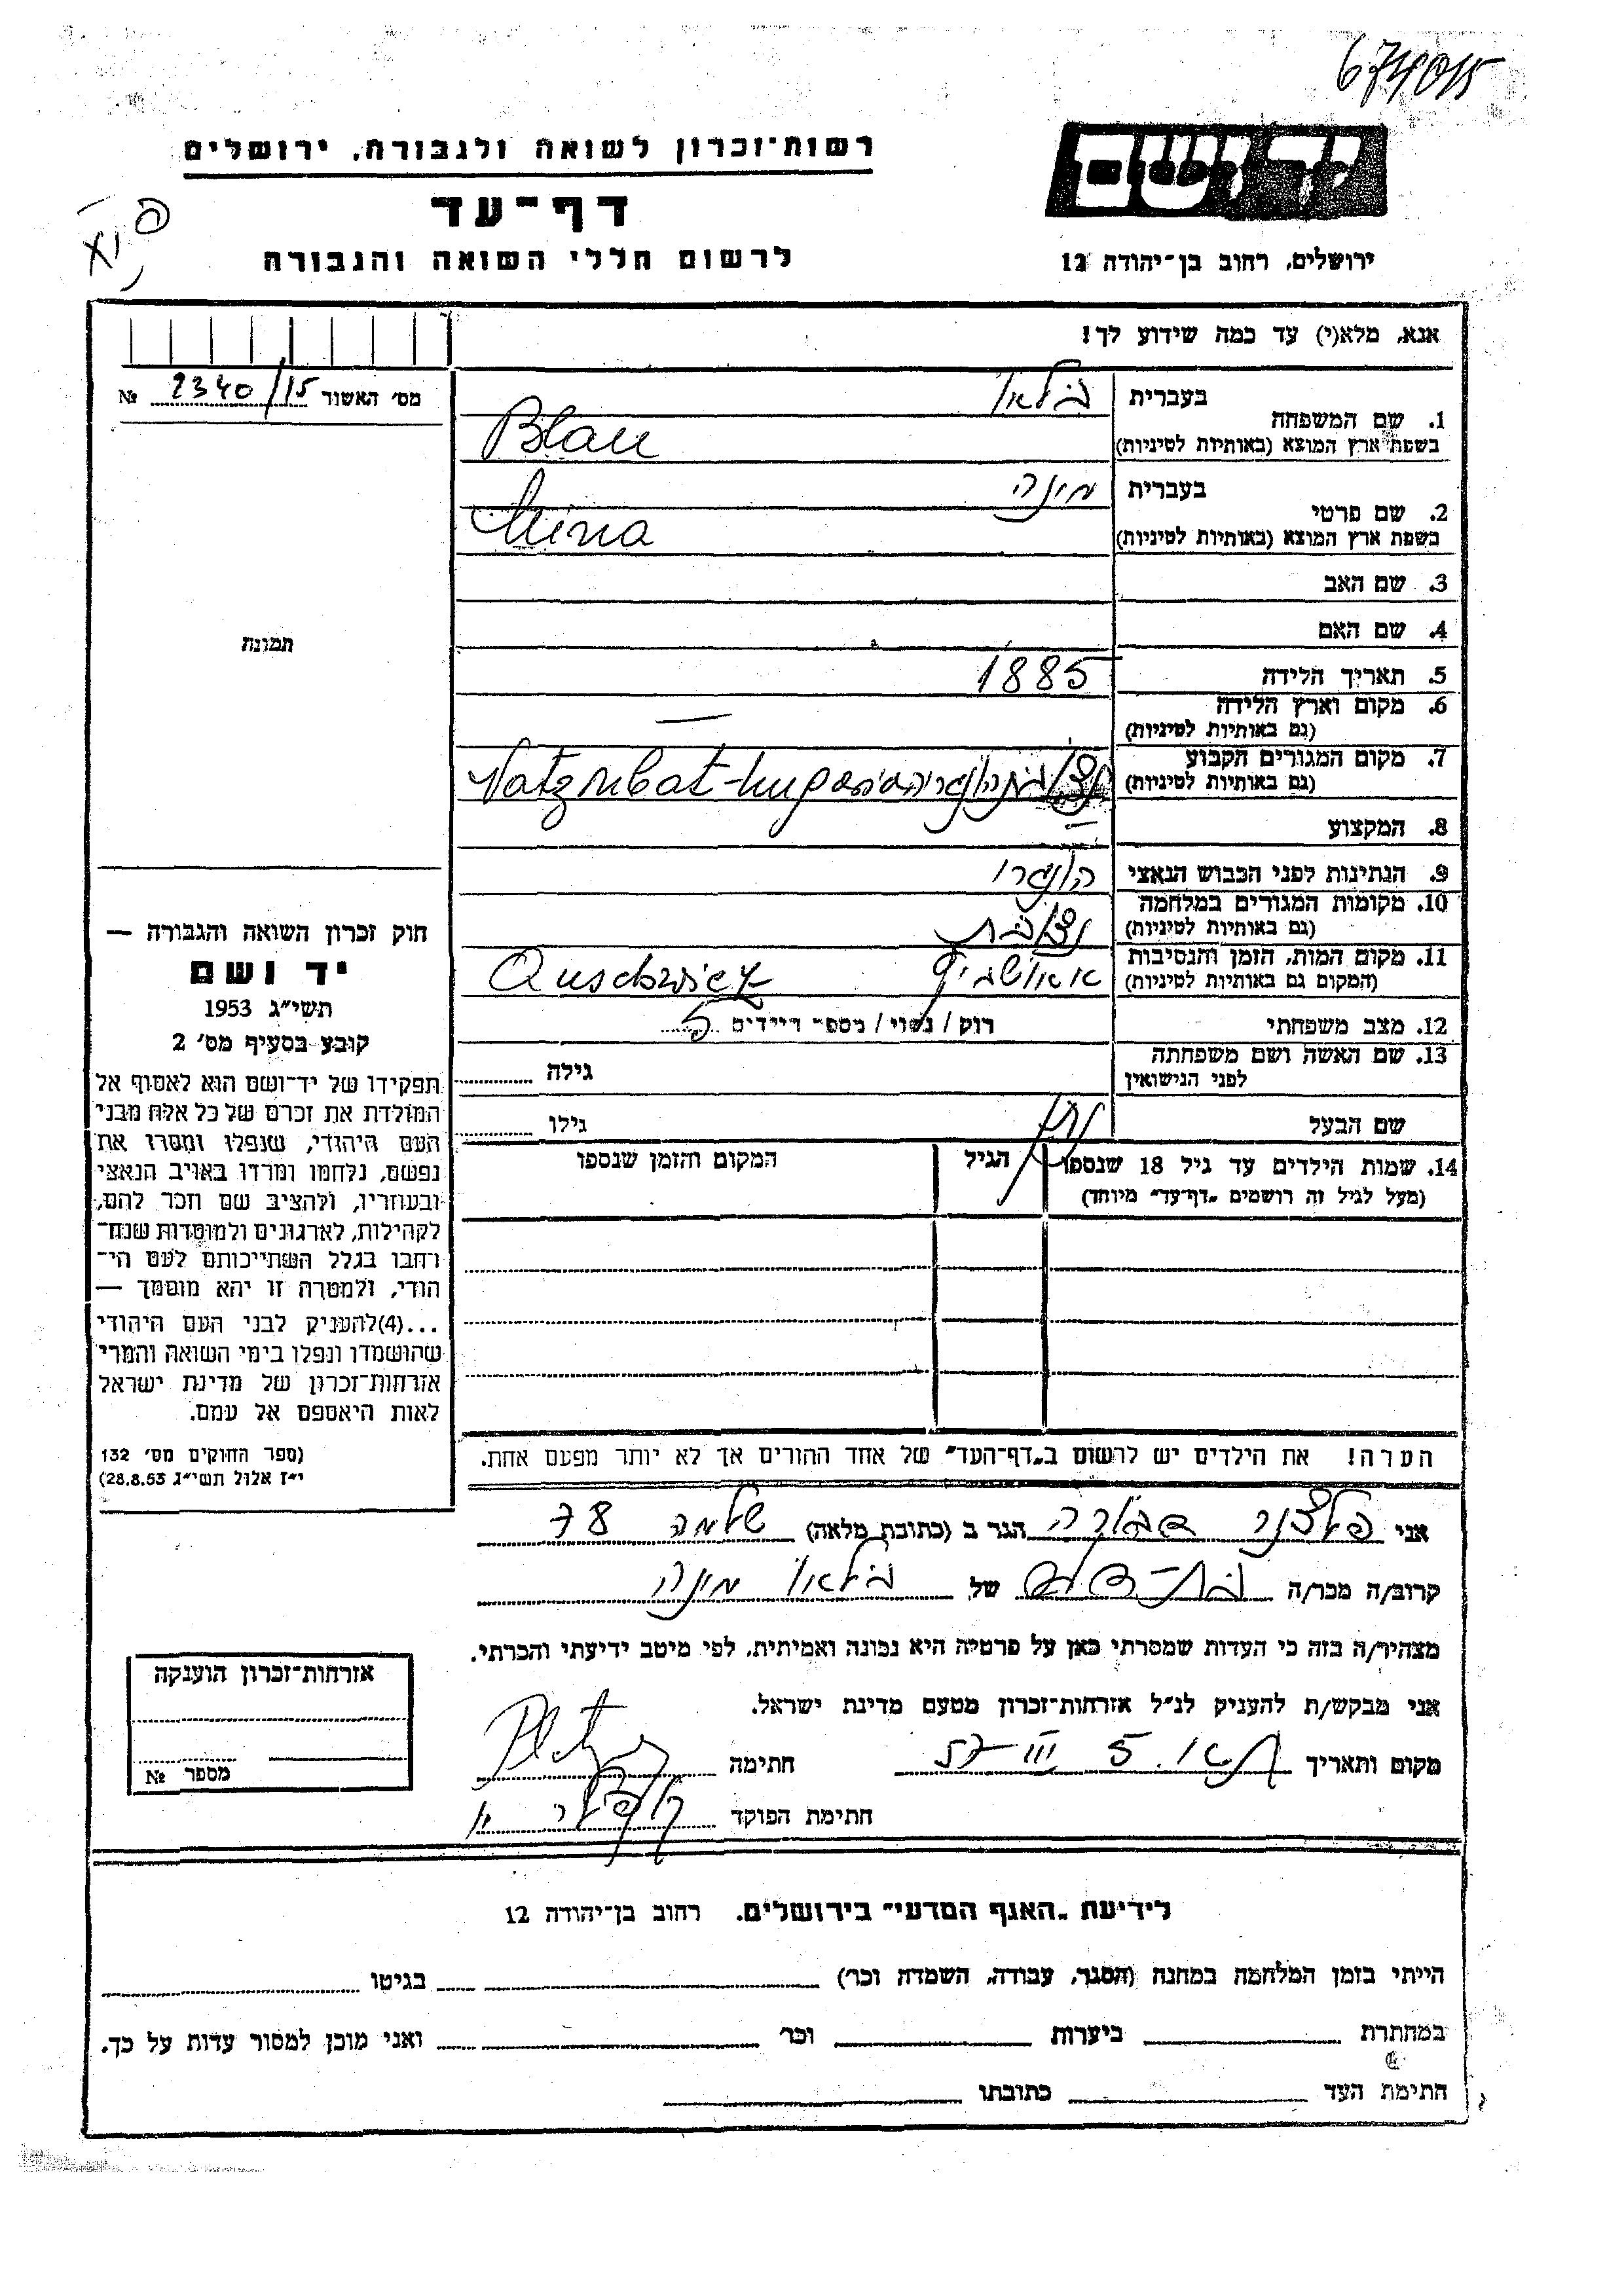 674015
יד ושם
רשות־זכרון לשואה ולגבורה, ירושלים
דף־עד
לרשום חללי השואה והגבורה
ירושלים, רחוב בן־יהודה 12
אנא, מלא(י) עד כמה שידוע לך!
מס׳ האשור 2340/15 №
1. שם המשפחה
בעברית בלאו
בשפת ארץ המוצא (באותיות לטיניות) Blau
2. שם פרטי
בעברית מינה
בשפת ארץ המוצא (באותיות לטיניות) Mina
3. שם האב
4. שם האם
תמונה
5. תאריך הלידה 1885
6. מקום וארץ הלידה —
(גם באותיות לטיניות)
7. מקום המגורים הקבוע
(גם באותיות לטיניות)
8. המקצוע —
9. הנתינות לפני הכבוש הנאצי הונגרי
10. מקומות המגורים במלחמה
(גם באותיות לטיניות)
11. מקום המות, הזמן והנסיבות
(המקום גם באותיות לטיניות)
12. מצב משפחתי רוק / נשוי / מספר הילדים 5
13. שם האשה ושם משפחתה
לפני הנישואין גילה
שם הבעל נתן גילו
14. שמות הילדים עד גיל 18 שנספו הגיל המקום והזמן שנספו
(מעל לגיל זה רושמים „דף־עד״ מיוחד)
הערה! את הילדים יש לרשום ב„דף־העד״ של אחד ההורים אך לא יותר מפעם אחת.
חוק זכרון השואה והגבורה —
יד ושם
תשי״ג 1953
קובע בסעיף מס׳ 2
תפקידו של יד־ושם הוא לאסוף אל
המולדת את זכרם של כל אלה מבני
העם היהודי, שנפלו ומסרו את
נפשם, נלחמו ומרדו באויב הנאצי
ובעוזריו, ולהציב שם וזכר להם,
לקהילות, לארגונים ולמוסדות שנח־
רבו בגלל השתייכותם לעם הי־
הודי, ולמטרה זו יהא מוסמך —
...(4) להעניק לבני העם היהודי
שהושמדו ונפלו בימי השואה והמרי
אזרחות־זכרון של מדינת ישראל
לאות היאספם אל עמם.
(ספר החוקים מס׳ 132
י״ז אלול תשי״ג 28.8.53)
אני פלצנר הגר ב (כתובת מלאה) שלמה 78
קרוב/ה מכר/ה של בלאו מינה
מצהיר/ה בזה כי העדות שמסרתי כאן על פרטיה היא נכונה ואמיתית, לפי מיטב ידיעתי והכרתי.
אני מבקש/ת להעניק לנ״ל אזרחות־זכרון מטעם מדינת ישראל.
מקום ותאריך ת״א. 5 III 57 חתימה
חתימת הפוקד
אזרחות־זכרון הוענקה
מספר №
לידיעת „האגף המדעי״ בירושלים, רחוב בן־יהודה 12
הייתי בזמן המלחמה במחנה (הסגר, עבודה, השמדה וכר׳) בגיטו
במחתרת ביערות וכר׳ ואני מוכן למסור עדות על כך.
חתימת העד כתובתו